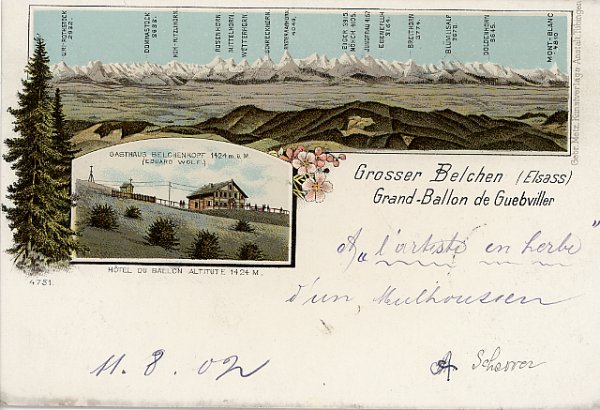 URI-ROTHSTOCK 2932.
FINSTERAARHORN 4275.
WETTERHORN
SCHRECKHORN
EIGER 3975
MÖNCH 4105
JUNGFRAU 4167
BREITHORN 3774.
BLÜMLISALP 3670
DOLDENHORN 3645.
MONT-BLANC 4810
Gebr. Metz, Kunstverlags-Anstalt, Tübingen
GASTHAUS BELCHENKOPF 1424 m ü. M.
(EDUARD WOLF.)
HÔTEL DU BALLON ALTITUTE 1424 M.
4751.
Grosser Belchen (Elsass)
Grand-Ballon de Guebwiller
A „l'artiste en herbe"
d'un Mulhousien
11. 8. 02
A Scherrer